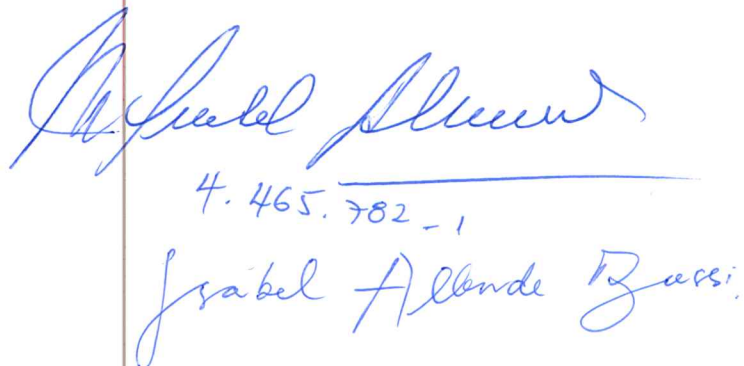 4.465.782-1
Isabel Allende Bussi.